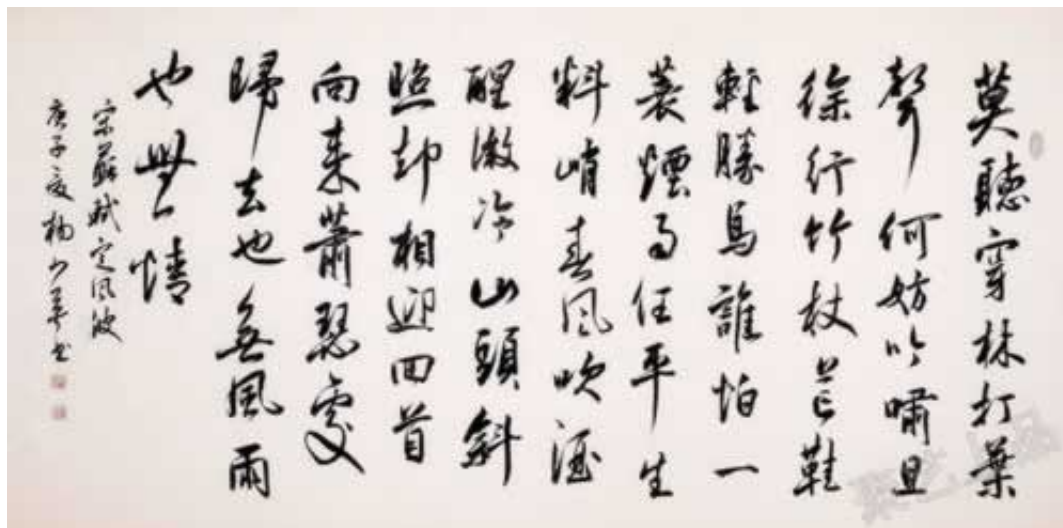 莫聽穿林打葉
聲何妨吟嘯且
徐行竹杖芒鞋
輕勝馬誰怕一
蓑煙雨任平生
料峭春風吹酒
醒微冷山頭斜
照却相迎回首
向来蕭瑟處
歸去也無風雨
也無情
宋蘇軾定風波
庚子夏楊書